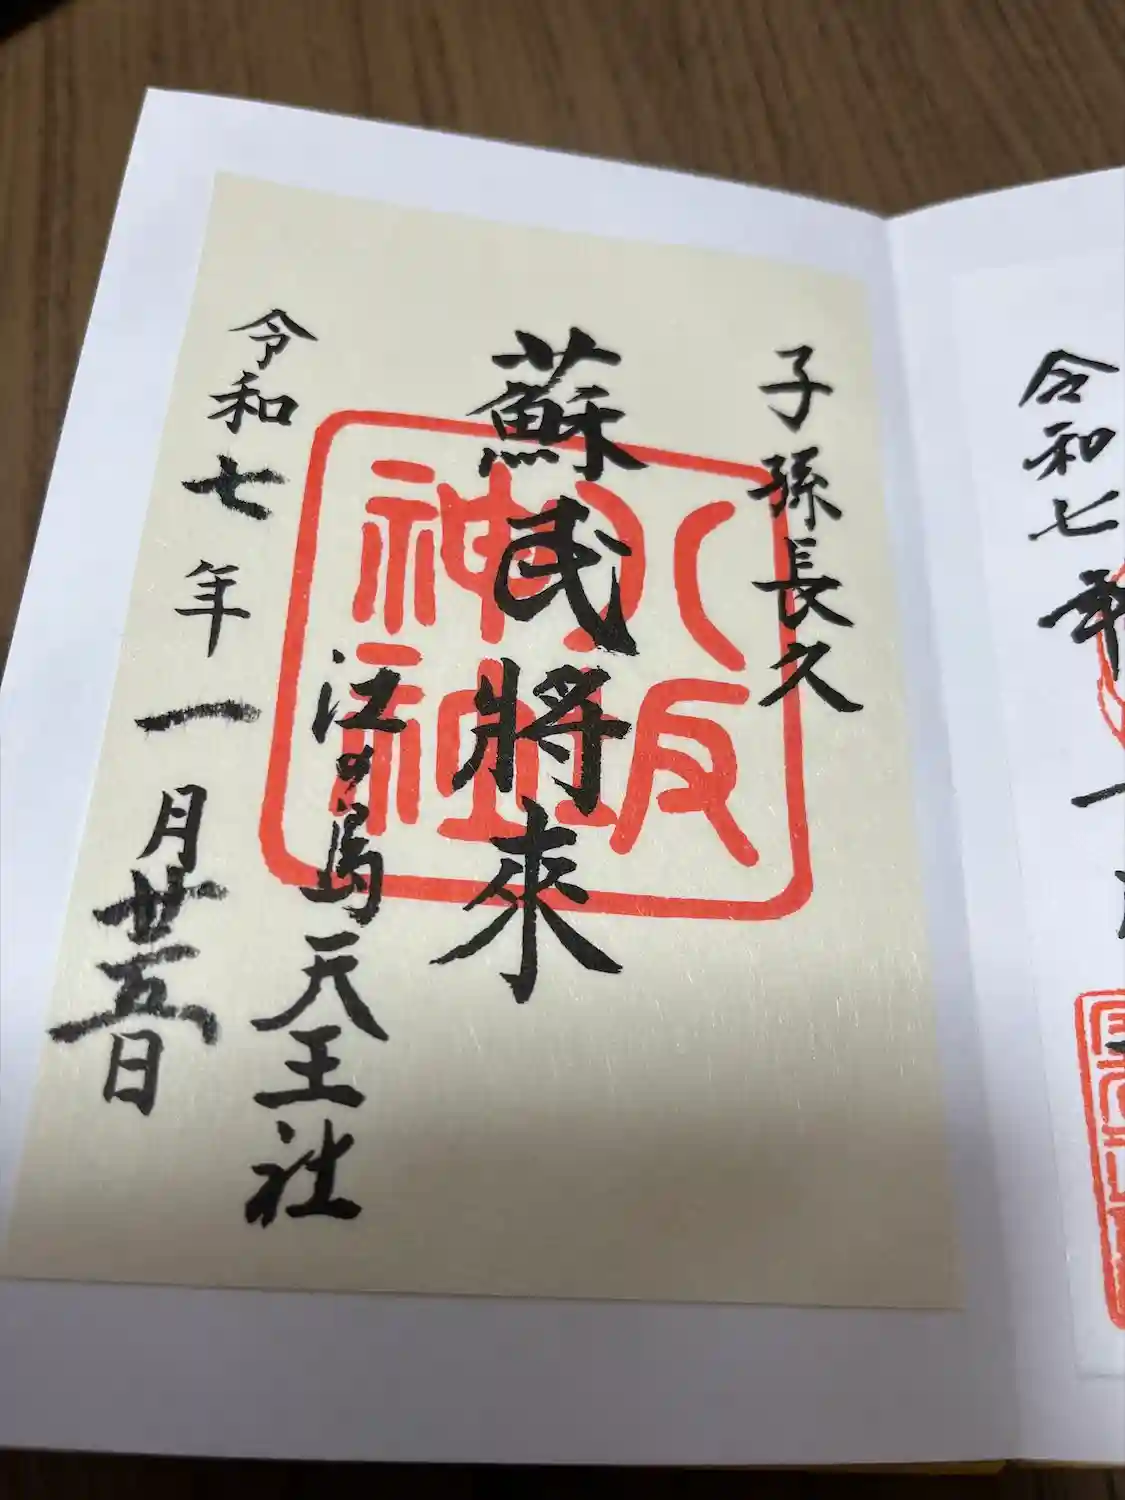 令和七年一
子孫長久
蘇民將來
八坂
神社
江の島天王社
令和七年一月廿五日